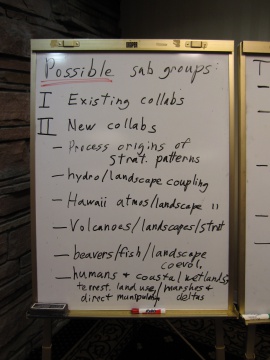 Possible sub groups:
I Existing collabs
II New collabs
– Process origins of
strat. patterns
– hydro/landscape coupling
– Hawaii atmos/landscape "
– Volcanoes/landscapes/strat
– beavers/fish/landscape
coevol.
– humans & coastal wetlands,
terrest. land use/ marshes &
direct manipulatn deltas